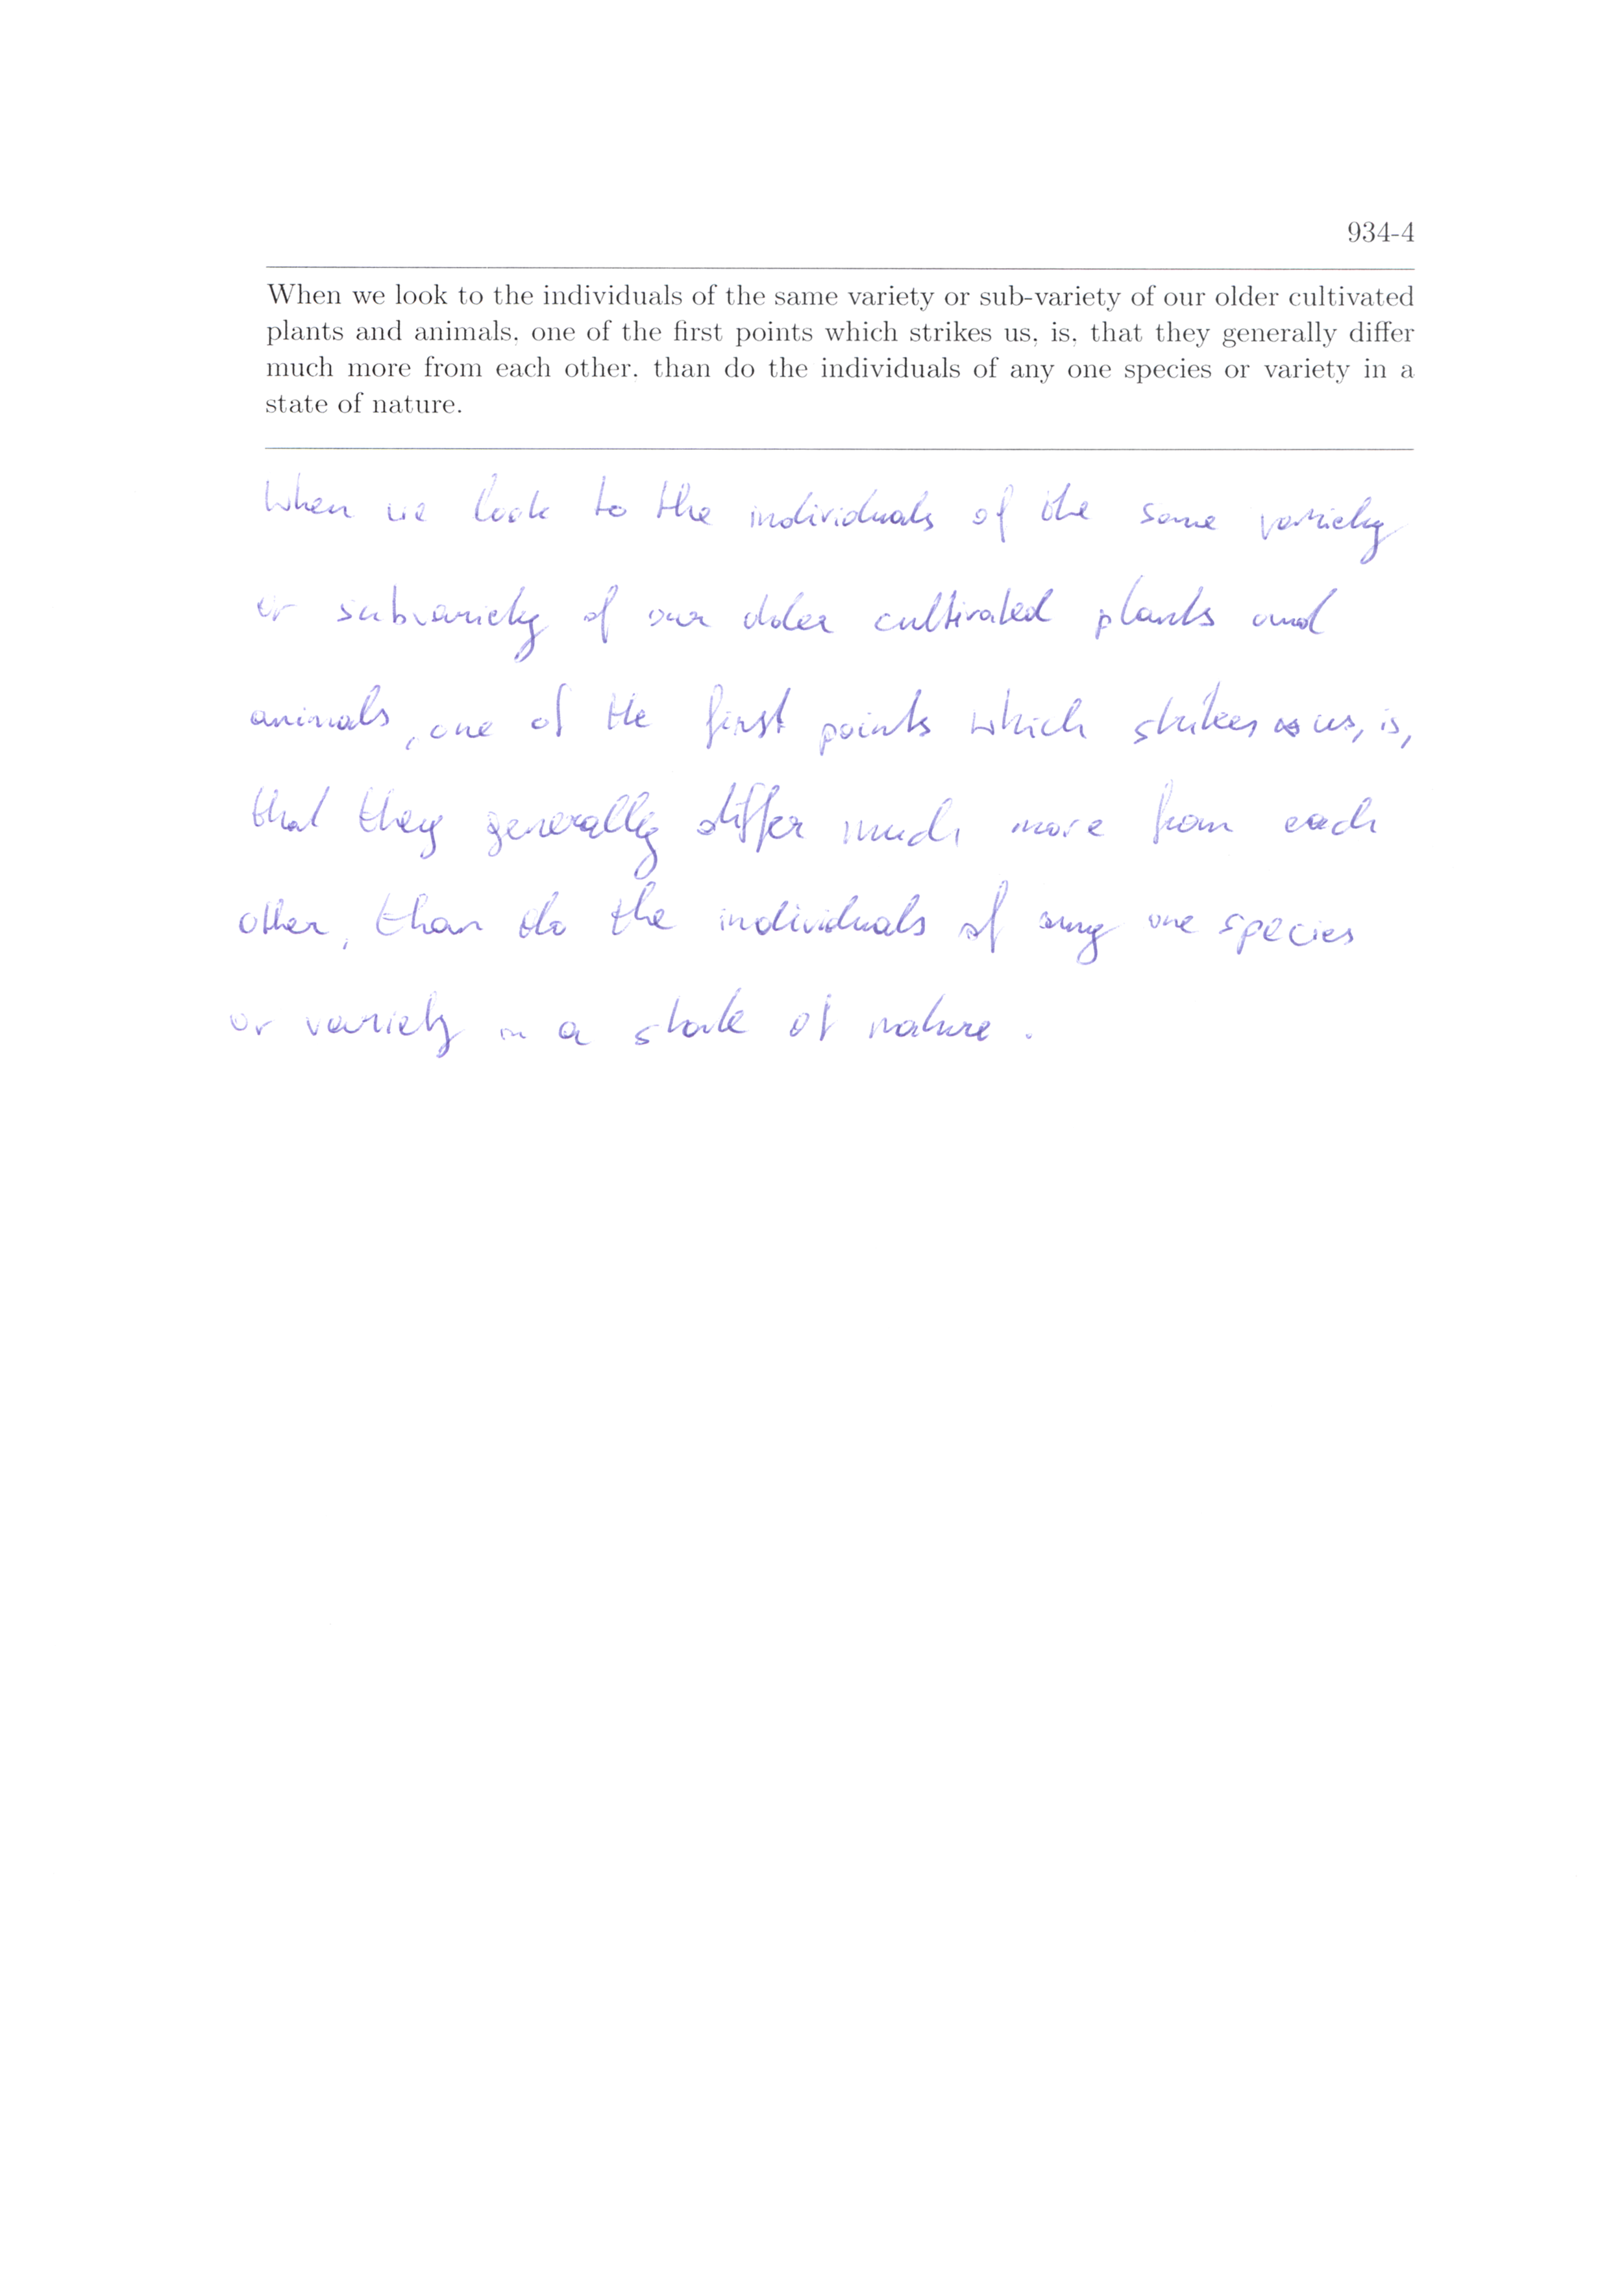 934-4
When we look to the individuals of the same variety or sub-variety of our older cultivated
plants and animals, one of the first points which strikes us, is, that they generally differ
much more from each other, than do the individuals of any one species or variety in a
state of nature.
When we look to the individuals of the same variety
or subvariety of our older cultivated plants and
animals, one of the first points which strikes us, is,
that they generally differ much more from each
other, than do the individuals of any one species
or variety in a state of nature.